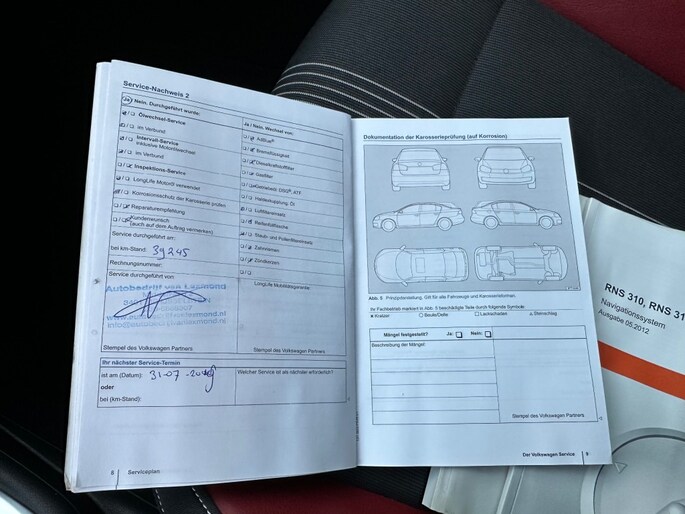 Service-Nachweis 2
Ja / Nein. Durchgeführt wurde:
Ölwechsel-Service
im Verbund
Intervall-Service
inklusive Motorölwechsel
im Verbund
Inspektions-Service
LongLife Motoröl verwendet
Korrosionsschutz der Karosserie prüfen
Reparaturempfehlung
Kundenwunsch
(auch auf dem Auftrag vermerken)
Service durchgeführt am:
bei km-Stand: 39245
Rechnungsnummer:
Service durchgeführt von:
Autobedrijf van
Stempel des Volkswagen Partners
Ja / Nein. Wechsel von:
AdBlue®
Bremsflüssigkeit
Dieselkraftstofffilter
Gasfilter
Getriebeöl: DSG®, ATF
Haldexkupplung: Öl
Luftfiltereinsatz
Reifenfüllflasche
Staub- und Pollenfiltereinsatz
Zahnriemen
Zündkerzen
LongLife Motorölabgemerke:
Stempel des Volkswagen Partners
Ihr nächster Service-Termin
ist am (Datum): 31-07-
oder
bei (km-Stand):
Welcher Service ist als nächster erforderlich?
8 Serviceplan
Dokumentation der Karosserieprüfung (auf Korrosion)
Abb. 5 Prinzipdarstellung. Gilt für alle Fahrzeuge und Karosserieformen.
Ihr Fachbetrieb markiert in Abb. 5 beschädigte Teile durch folgende Symbole:
Kratzer Beule/Delle Lackschaden Steinschlag
Mängel festgestellt? Ja: Nein:
Beschreibung der Mängel:
Stempel des Volkswagen Partners
Der Volkswagen Service 9
RNS 310, RNS 31
Navigationssystem
Ausgabe 05.2012